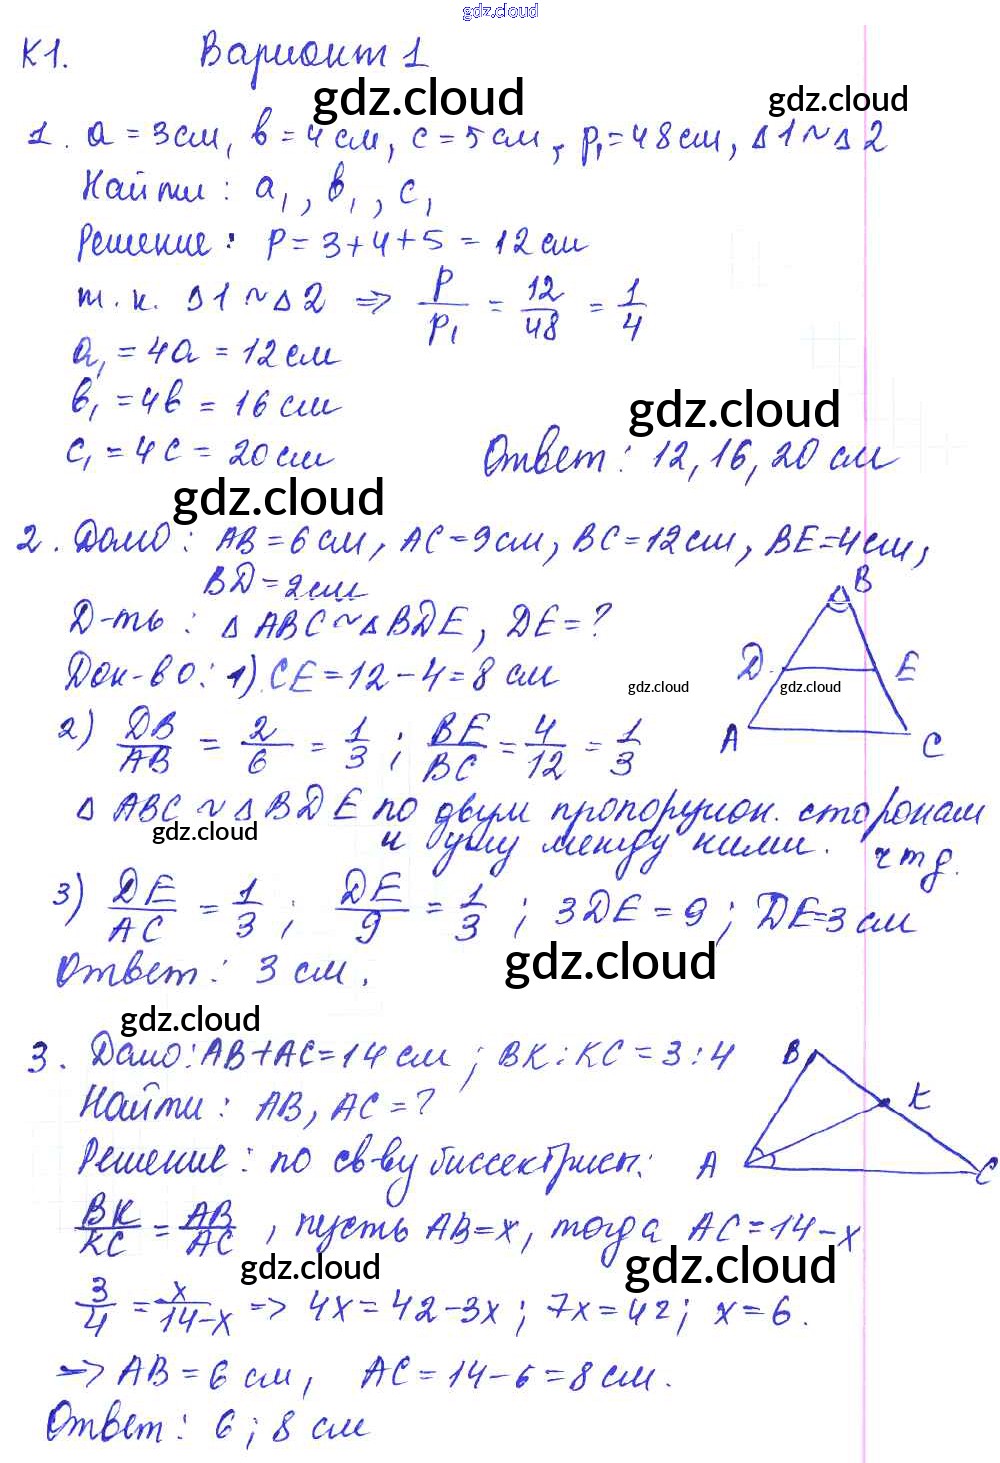 gdz.cloud
К1. Вариант 1
gdz.cloud gdz.cloud
1. a = 3 см, b = 4 см, c = 5 см, p₁ = 48 см, Δ1 ~ Δ2
Найти: a₁, b₁, c₁
Решение: P = 3 + 4 + 5 = 12 см
т. к. Δ1 ~ Δ2 => P/P₁ = 12/48 = 1/4
a₁ = 4a = 12 см
b₁ = 4b = 16 см
gdz.cloud
c₁ = 4c = 20 см Ответ: 12, 16, 20 см
gdz.cloud
2. Дано: AB = 6 см, AC = 9 см, BC = 12 см, BE = 4 см,
BD = 2 см
B
Д-ть: Δ ABC ~ Δ BDE, DE = ?
Док-во: 1) CE = 12 - 4 = 8 см
D E
gdz.cloud gdz.cloud
2) DB/AB = 2/6 = 1/3; BE/BC = 4/12 = 1/3
A C
Δ ABC ~ Δ BDE по двум пропорцион. сторонам
gdz.cloud
и углу между ними. чтд.
3) DE/AC = 1/3; DE/9 = 1/3; 3DE = 9; DE = 3 см
gdz.cloud
Ответ: 3 см.
gdz.cloud
3. Дано: AB + AC = 14 см; BK : KC = 3 : 4
B
Найти: AB, AC = ?
K
Решение: по св-ву биссектрисы:
A C
BK/KC = AB/AC, пусть AB = x, тогда AC = 14 - x
gdz.cloud gdz.cloud
3/4 = x/14-x => 4x = 42 - 3x; 7x = 42; x = 6.
=> AB = 6 см, AC = 14 - 6 = 8 см.
Ответ: 6; 8 см